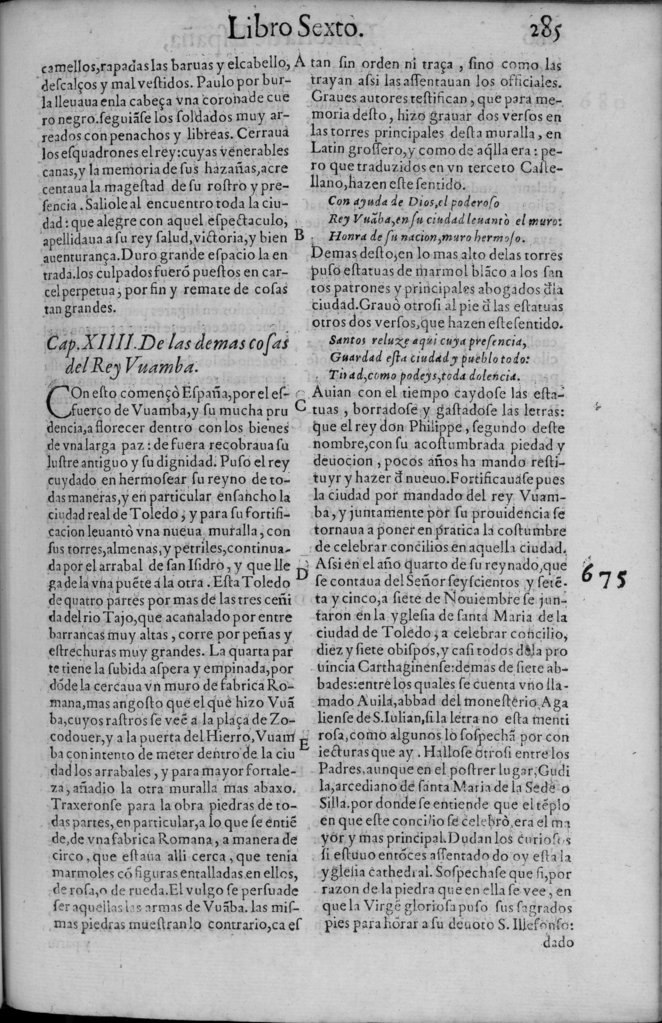 Libro Sexto. 285
camellos,rapadas las baruas y el cabello,
descalços y mal vestidos. Paulo por bur-
la lleuaua enla cabeça vna corona de cue
ro negro.seguiãse los soldados muy ar-
reados con penachos y libreas. Cerraua
los esquadrones el rey:cuyas venerables
canas,y la memoria de sus hazañas,acre
centaua la magestad de su rostro y pre-
sencia. Saliole al encuentro toda la ciu-
dad: que alegre con aquel espectaculo,
apellidaua a su rey salud,victoria,y bien
auenturança. Duro grande espacio la en
trada.los culpados fuerõ puestos en car-
cel perpetua, por fin y remate de cosas
tan grandes.
Cap.XIIII.De las demas cosas
del Rey Vuamba.
COn esto començò España,por el es-
fuerço de Vuamba,y su mucha pru
dencia,a florecer dentro con los bienes
de vna larga paz: de fuera recobraua su
lustre antiguo y su dignidad. Puso el rey
cuydado en hermosear su reyno de to-
das maneras,y en particular ensancho la
ciudad real de Toledo, y para su fortifi-
cacion leuantò vna nueua muralla, con
sus torres,almenas,y petriles,continua-
da por el arrabal de san Isidro, y que lle
ga de la vna puẽte a la otra. Esta Toledo
de quatro partes por mas de las tres ceñi
da del rio Tajo,que acanalado por entre
barrancas muy altas, corre por peñas y
estrechuras muy grandes. La quarta par
te tiene la subida aspera y empinada,por
dõde la cercaua vn muro de fabrica Ro-
mana,mas angosto que el que hizo Vuã
ba,cuyos rastros se veẽ a la plaça de Zo-
codouer,y a la puerta del Hierro, Vuam
ba con intento de meter dentro de la ciu
dad los arrabales, y para mayor fortale-
za, añadio la otra muralla mas abaxo.
Traxeronse para la obra piedras de to-
das partes, en particular,a lo que se entiẽ
de,de vna fabrica Romana, a manera de
circo, que estaua alli cerca, que tenia
marmoles cõ figuras entalladas en ellos,
de rosa,o de rueda.El vulgo se persuade
ser aquellas las armas de Vuãba. las mis-
mas piedras muestran lo contrario,ca es
A
B
C
D
E
tan sin orden ni traça, sino como las
trayan assi las assentauan los officiales.
Graues autores testifican, que para me-
moria desto, hizo grauar dos versos en
las torres principales desta muralla, en
Latin grossero,y como de aq̃lla era: pe-
ro que traduzidos en vn terceto Caste-
llano,hazen este sentido.
Con ayuda de Dios,el poderoso
Rey Vuãba,en su ciudad leuantò el muro:
Honra de su nacion,muro hermoso.
Demas desto,en lo mas alto delas torres
puso estatuas de marmol blãco a los san
tos patrones y principales abogados d̃la
ciudad.Grauò otrosi al pie d̃ las estatuas
otros dos versos,que hazen este sentido.
Santos reluze aqui cuya presencia,
Guardad esta ciudad y pueblo todo:
Tirad,como podeys,toda dolencia.
Auian con el tiempo caydose las esta-
tuas, borradose y gastadose las letras:
que el rey don Philippe, segundo deste
nombre,con su acostumbrada piedad y
deuocion, pocos años ha mando resti-
tuyr y hazer d̃ nueuo.Fortificauase pues
la ciudad por mandado del rey Vuam-
ba, y juntamente por su prouidencia se
tornaua a poner en pratica la costumbre
de celebrar concilios en aquella ciudad.
Assi en el año quarto de su reynado,que
se contaua del Señor seyscientos y setẽ-
ta y cinco, a siete de Nouiembre se jun-
taron en la yglesia de santa Maria de la
ciudad de Toledo, a celebrar concilio,
diez y siete obispos, y casi todos d̃ la pro
uincia Carthaginense:demas de siete ab-
bades:entre los quales se cuenta vno lla-
mado Auila,abbad del monesterio Aga
liense de S.Iulian,si la letra no esta menti
rosa,como algunos lo sospechã por con
iecturas que ay. Hallose otrosi entre los
Padres,aunque en el postrer lugar, Gudi
la,arcediano de santa Maria de la Sede o
Silla.por donde se entiende que el tẽplo
en que este concilio se celebrò, era el ma
yor y mas principal. Dudan los curiosos
si estuuo entõces assentado do oy esta la
yglesia cathedral. Sospechase que si,por
razon de la piedra que en ella se vee, en
que la Virgẽ gloriosa puso sus sagrados
pies para hõrar a su deuoto S. Illefonso:
dado
675